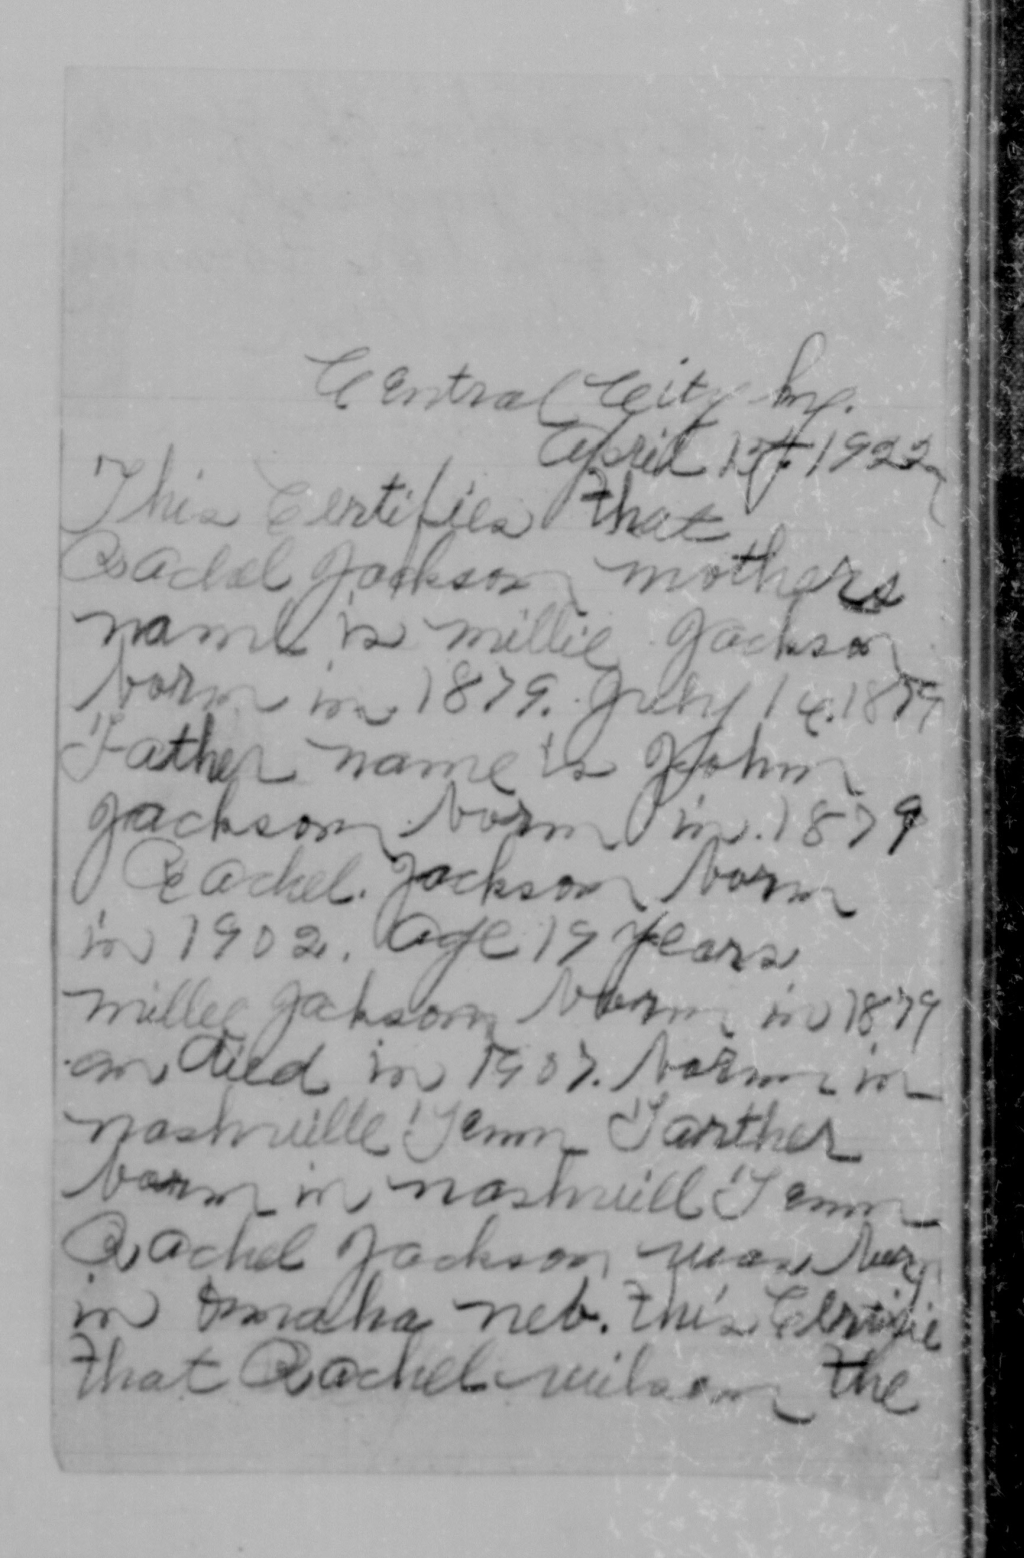 Central City Ky.
April 13th 1922
This Certifies that
Rachel Jackson mothers
name is millie Jackson
born in 1879. July 14. 1879
Father name is John
Jackson born in. 1879
Rachel. Jackson born
in 1902. Age 19 years
millee Jackson born in 1879
an died in 1907. born in
nashville Tenn Farther
born in nashvill Tenn
Rachel Jackson was born
in Omaha neb. this Certifie
that Rachel wilson the